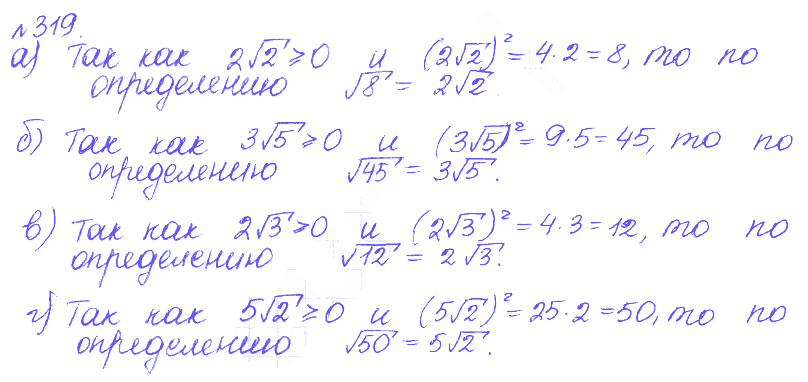 №319.
а) Так как 2√2 ≥ 0 и (2√2)² = 4·2 = 8, то по
определению √8 = 2√2.
б) Так как 3√5 ≥ 0 и (3√5)² = 9·5 = 45, то по
определению √45 = 3√5.
в) Так как 2√3 ≥ 0 и (2√3)² = 4·3 = 12, то по
определению √12 = 2√3.
г) Так как 5√2 ≥ 0 и (5√2)² = 25·2 = 50, то по
определению √50 = 5√2.